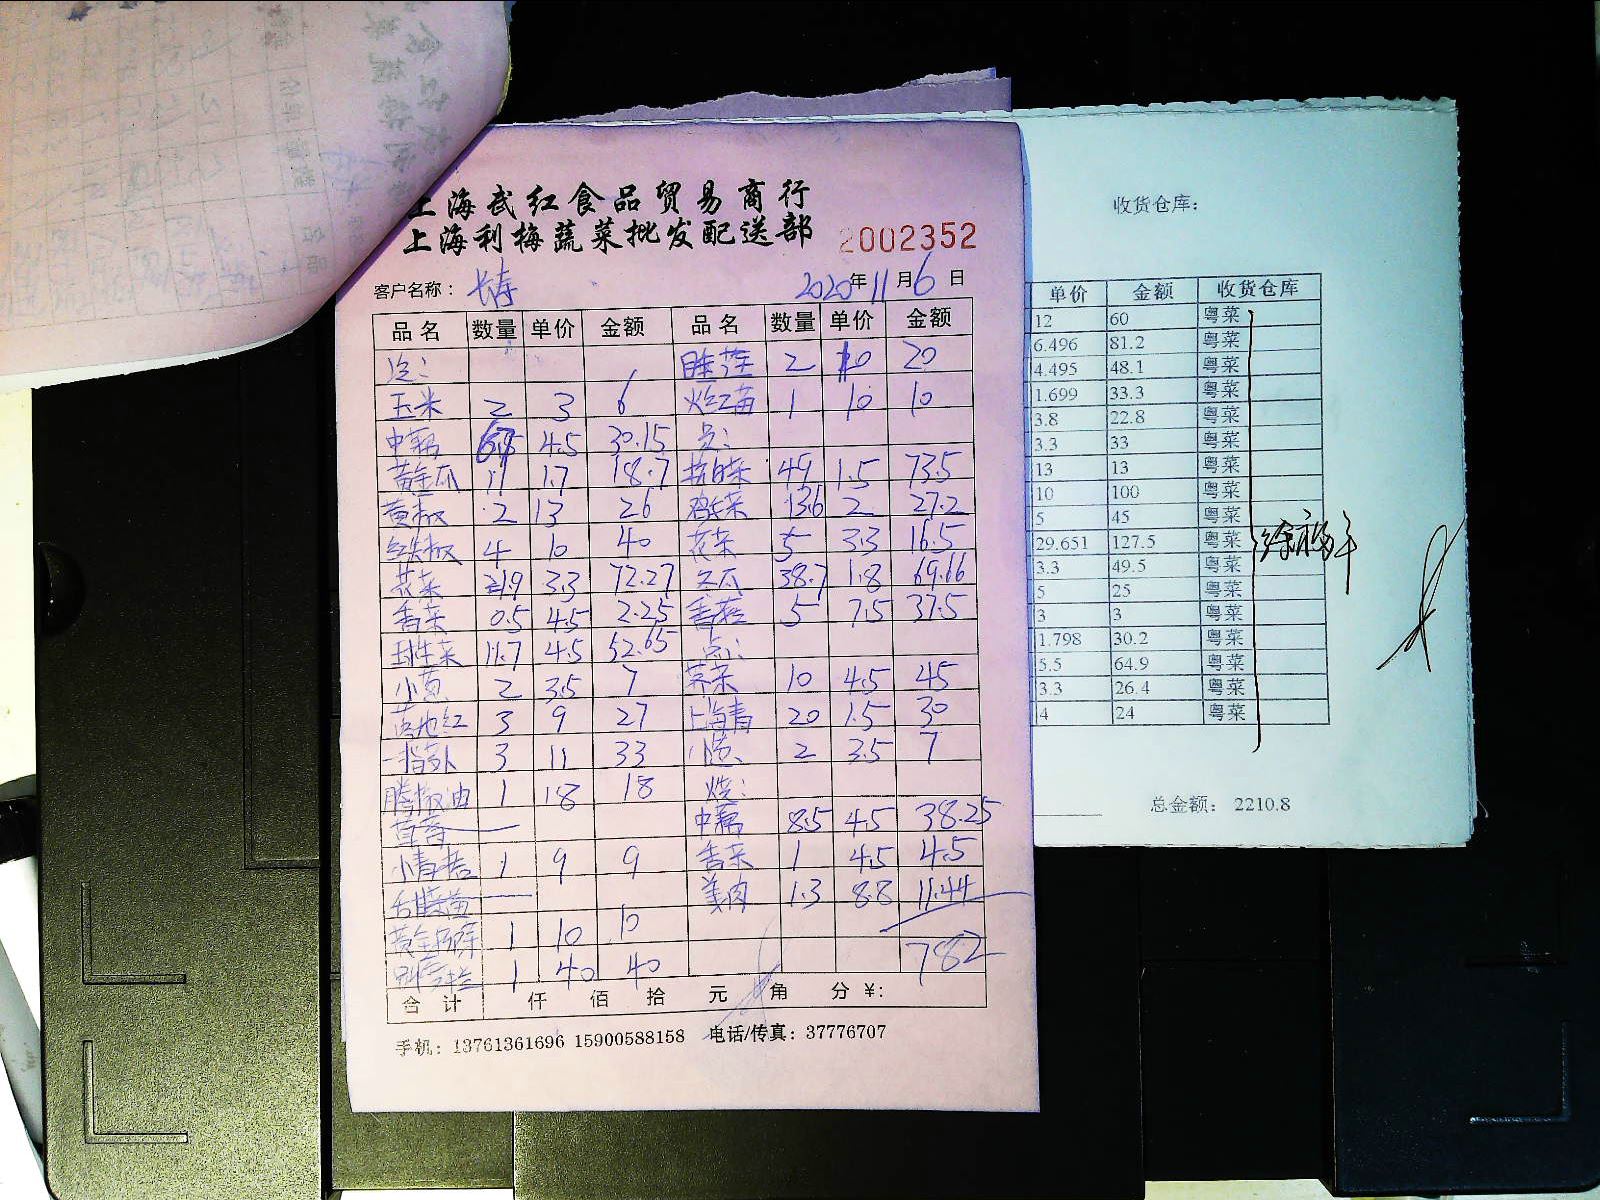 上海武红食品贸易商行
上海利梅蔬菜批发配送部
2002352
客户名称： 长寿 2020年11月6日
品名 数量 单价 金额 品名 数量 单价 金额
2 10 20
玉米 2 3 6 1 10 10
中藕 4.5 30.15
黄金瓜 11 1.7 18.7 49 1.5 73.5
黄椒 2 13 26 13.6 2 27.2
红尖椒 4 10 40 花菜 5 3.3 16.5
花菜 21.9 3.3 72.27 冬瓜 38.7 1.8 69.66
香菜 0.5 4.5 2.25 香菇 5 7.5 37.5
球生菜 11.7 4.5 52.65 点：
小葱 2 3.5 7 芥菜 10 4.5 45
3 9 27 上海青 20 1.5 30
3 11 33 小葱 2 3.5 7
藤椒油 1 18 18 烧：
草莓 — 中藕 8.5 4.5 38.25
1 9 9 香菜 1 4.5 4.5
— 姜肉 1.3 8.8 11.44
1 10 10
1 40 40 782
合计 仟 佰 拾 元 角 分 ¥:
手机：13761361696 15900588158 电话/传真：37776707
收货仓库：
单价 金额 收货仓库
12 60 粤菜
6.496 81.2 粤菜
4.495 48.1 粤菜
1.699 33.3 粤菜
3.8 22.8 粤菜
3.3 33 粤菜
13 13 粤菜
10 100 粤菜
5 45 粤菜
29.651 127.5 粤菜
3.3 49.5 粤菜
5 25 粤菜
3 3 粤菜
1.798 30.2 粤菜
5.5 64.9 粤菜
3.3 26.4 粤菜
4 24 粤菜
总金额： 2210.8